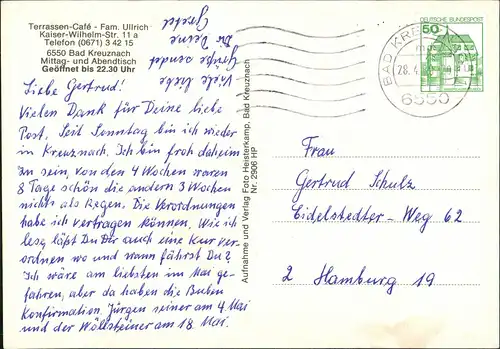 Terrassen-Café - Fam. Ullrich
Kaiser-Wilhelm-Str. 11 a
Telefon (0671) 3 42 15
6550 Bad Kreuznach
Mittag- und Abendtisch
Geöffnet bis 22.30 Uhr
Liebe Gertrud!
Vielen Dank für Deine liebe
Post. Seit Sonntag bin ich wieder
in Kreuznach. Ich bin froh daheim
zu sein, von den 4 Wochen waren
8 Tage schön die andern 3 Wochen
nichts als Regen. Die Verordnungen
habe ich vertragen können. Wie ich
lese läßt Du Dir auch eine Kur ver-
ordnen wo und wann fährst Du?
Ich wäre am liebsten im Mai ge-
fahren, aber da haben die Buben
Konfirmation. Jürgen seiner am 4 Mai
und der Wöllsteiner am 18 Mai.
Viele liebe
Grüße sendet
Dir Deine
Gretel
Aufnahme und Verlag Foto Heisterkamp, Bad Kreuznach
Nr. 2906 HP
DEUTSCHE BUNDESPOST
50
BAD KRE
28.4.
6550
Frau
Gertrud Schulz
Eidelstedter-Weg 62
2 Hamburg 19